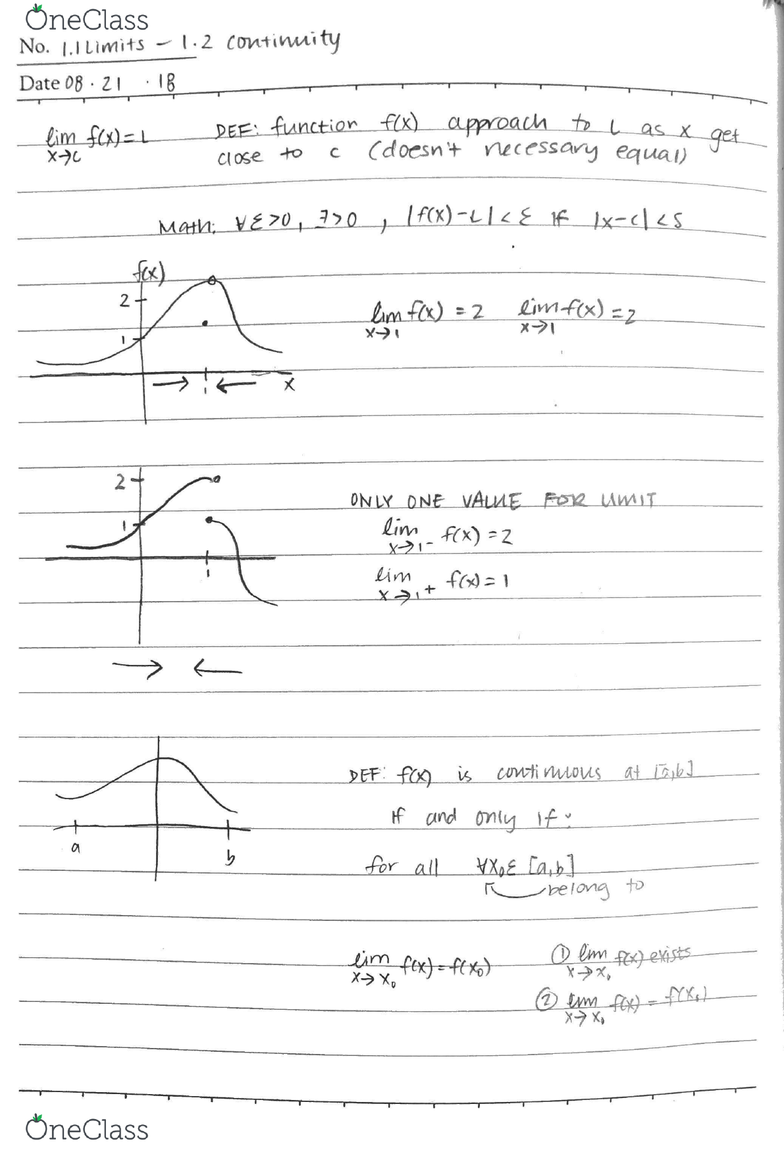 OneClass
No. 1.1 Limits - 1.2 continuity
Date 08 · 21 · 18
lim f(x) = L DEF: function f(x) approach to L as x get
x→c close to c (doesn't necessary equal)
Math: ∀ε>0, ∃>0, |f(x)-L|<ε If |x-c|<S
f(x)
2
1
1
x
lim f(x) = 2 lim f(x) = 2
x→1 x→1
2
1
1
ONLY ONE VALUE FOR LIMIT
lim f(x) = 2
x→1-
lim f(x) = 1
x→1+
a
b
DEF: f(x) is continuous at [a,b]
If and only if:
for all ∀x₀ε [a,b]
belong to
lim f(x) = f(x₀) ① lim f(x) exists
x→x₀ x→x₀
② lim f(x) = f(x₀)
x→x₀
OneClass